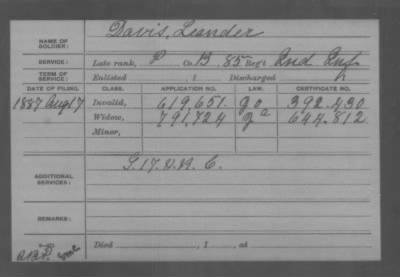 NAME OF SOLDIER: Davis, Leander
SERVICE: Late rank, P Co. B, 85 Reg't Ind Inf
TERM OF SERVICE: Enlisted , 1 Discharged
DATE OF FILING. CLASS. APPLICATION NO. LAW. CERTIFICATE NO.
1887 Aug 17 Invalid, 619,651. 392,430
Widow, 791,724 644,812
Minor,
ADDITIONAL SERVICES: 
REMARKS:
Died , 1 , at